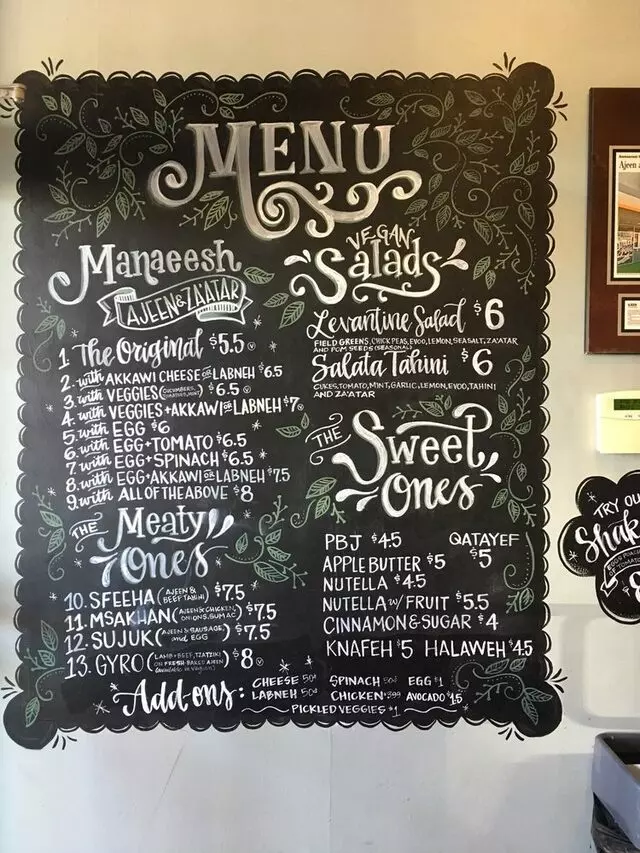 MENU
Manaeesh
AJEEN & ZA'ATAR
1 The Original $5.5 V
2. with AKKAWI CHEESE OR LABNEH $6.5
3. with VEGGIES (CUCUMBERS, TOMATOES, MINT) $6.5 V
4. with VEGGIES + AKKAWI OR LABNEH $7 V
5. with EGG $6
6. with EGG + TOMATO $6.5
7. with EGG + SPINACH $6.5
8. with EGG + AKKAWI OR LABNEH $7.5
9. with ALL OF THE ABOVE $8
THE Meaty Ones
10. SFEEHA (AJEEN & BEEF TAHINI) $7.5
11. MSAKHAN (AJEEN & CHICKEN, ONIONS, SUMAC) $7.5
12. SUJUK (AJEEN & SAUSAGE and EGG) $7.5
13. GYRO (LAMB + BEEF, TZATZIKI ON FRESH BAKED AJEEN (available in vegan)) $8 V
VEGAN
Salads
Levantine Salad $6
FIELD GREENS, CHICK PEAS, EVOO, LEMON, SEA SALT, ZA'ATAR
AND POM SEEDS (SEASONAL)
Salata Tahini $6
CUKES, TOMATO, MINT, GARLIC, LEMON, EVOO, TAHINI
AND ZA'ATAR
THE Sweet
Ones
PBJ $4.5 QATAYEF $5
APPLE BUTTER $5
NUTELLA $4.5
NUTELLA w/ FRUIT $5.5
CINNAMON & SUGAR $4
KNAFEH $5 HALAWEH $4.5
Add ons: CHEESE 50¢ SPINACH 50¢ EGG $1
LABNEH 50¢ CHICKEN $1.99 AVOCADO $1.5
PICKLED VEGGIES $1
TRY OU
Shak